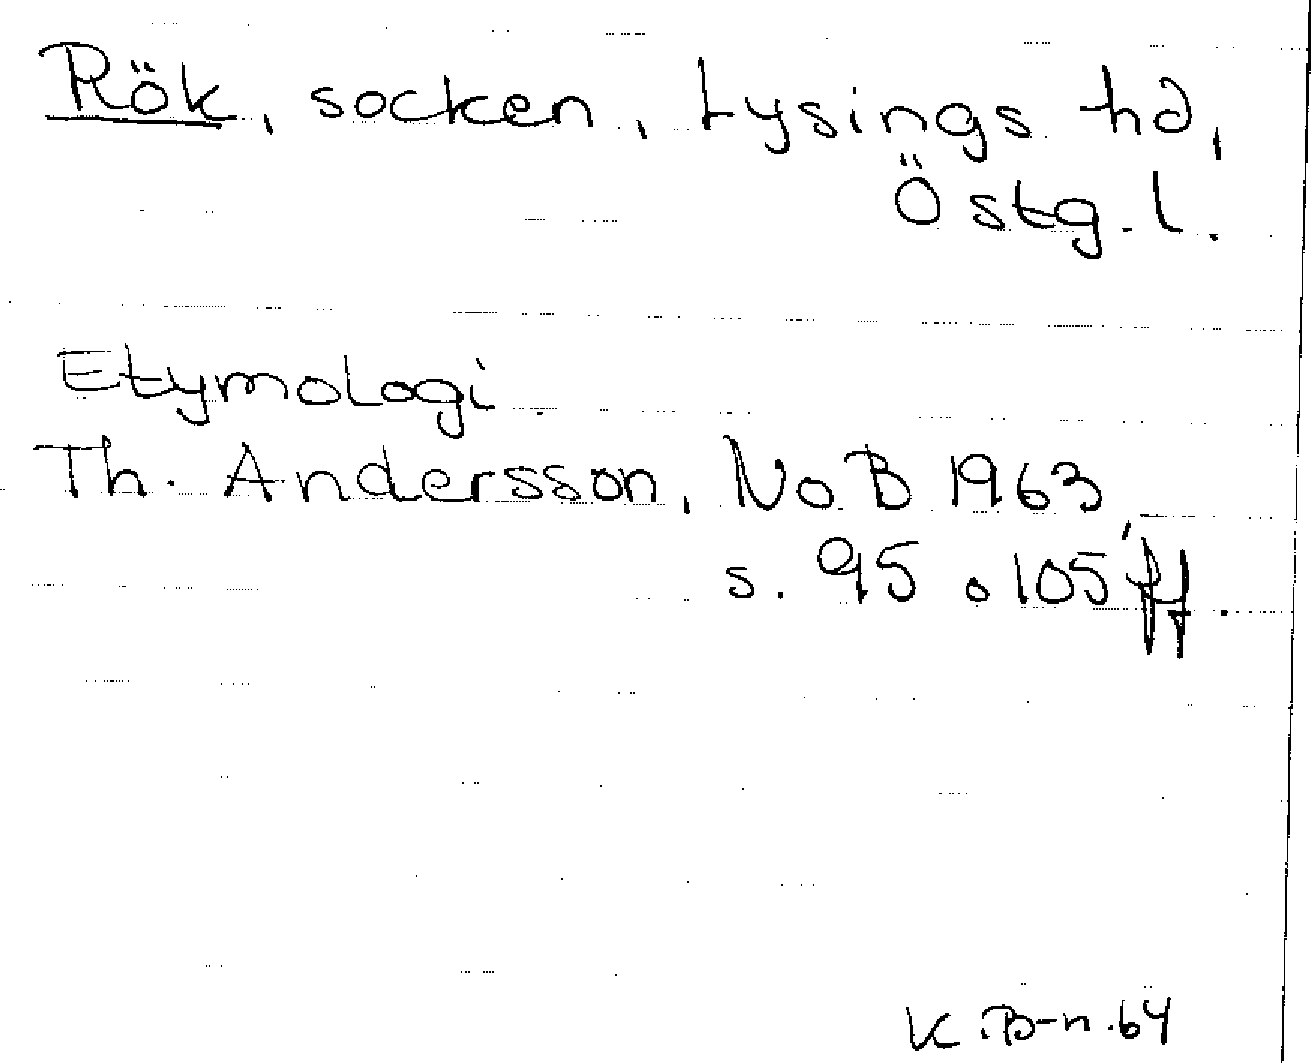 Rök, socken, Lysings hd,
Östg.l.
Etymologi
Th. Andersson, NoB 1963,
s. 95 o 105 ff.
K.B-n.64